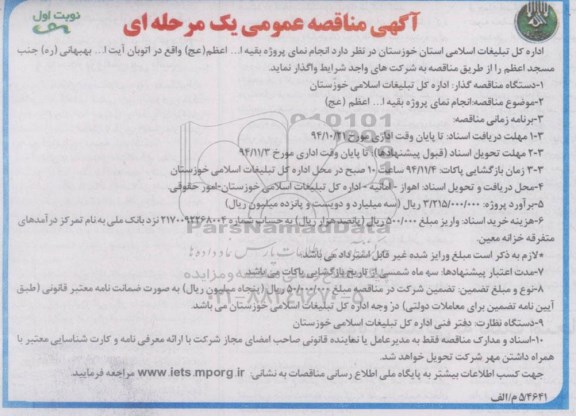 نوبت اول
آگهی مناقصه عمومی یک مرحله ای
اداره کل تبلیغات اسلامی استان خوزستان در نظر دارد انجام نمای پروژه بقیه ا... اعظم(عج) واقع در اتوبان آیت ا... بهبهانی (ره) جنب
مسجد اعظم را از طریق مناقصه به شرکت های واجد شرایط واگذار نماید.
۱-دستگاه مناقصه گذار: اداره کل تبلیغات اسلامی خوزستان
۲-موضوع مناقصه:انجام نمای پروژه بقیه ا... اعظم (عج)
۳-برنامه زمانی مناقصه:
۳-۱ مهلت دریافت اسناد: تا پایان وقت اداری مورخ ۹۴/۱۰/۲۱
۳-۲ مهلت تحویل اسناد (قبول پیشنهادها): تا پایان وقت اداری مورخ ۹۴/۱۱/۳
۳-۳ زمان بازگشایی پاکات: ۹۴/۱۱/۴ ساعت ۱۰ صبح در محل اداره کل تبلیغات اسلامی خوزستان
۴-محل دریافت و تحویل اسناد: اهواز - امانیه - اداره کل تبلیغات اسلامی خوزستان-امور حقوقی.
۵-برآورد پروژه: ۳/۲۱۵/۰۰۰/۰۰۰ ریال (سه میلیارد و دویست و پانزده میلیون ریال)
۶-هزینه خرید اسناد: واریز مبلغ ۵۰۰/۰۰۰ ریال (پانصدهزار ریال) به حساب شماره ۲۱۷۰۰۹۲۲۶۸۰۰۴ نزد بانک ملی به نام تمرکز درآمدهای
متفرقه خزانه معین.
*لازم به ذکر است مبلغ ورایز شده غیر قابل استرداد می باشد.
۷-مدت اعتبار پیشنهادها: سه ماه شمسی از تاریخ بازگشایی پاکات می باشد.
۸-نوع و مبلغ تضمین: تضمین شرکت در مناقصه مبلغ ۵۰/۰۰۰/۰۰۰ ریال(پنجاه میلیون ریال) به صورت ضمانت نامه معتبر قانونی (طبق
آیین نامه تضمین برای معاملات دولتی) در وجه اداره کل تبلیغات اسلامی خوزستان می باشد.
۹-دستگاه نظارت: دفتر فنی اداره کل تبلیغات اسلامی خوزستان
۱۰-اسناد و مدارک مناقصه فقط به مدیرعامل یا نماینده قانونی صاحب امضای مجاز شرکت با ارائه معرفی نامه و کارت شناسایی معتبر با
همراه داشتن مهر شرکت تحویل خواهد شد.
جهت کسب اطلاعات بیشتر به پایگاه ملی اطلاع رسانی مناقصات به نشانی: www.iets.mporg.ir مراجعه فرمایید.
۵/۴۶۴۱/م/الف
ParsNamadData
۰۲۱-۸۸۳۴۹۶۷۰-۵